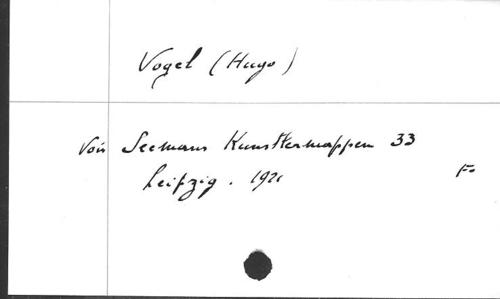 Vogel (Hugo)
Voir Seemans Kunstlermappen 33
Leipzig. 1921
Fo